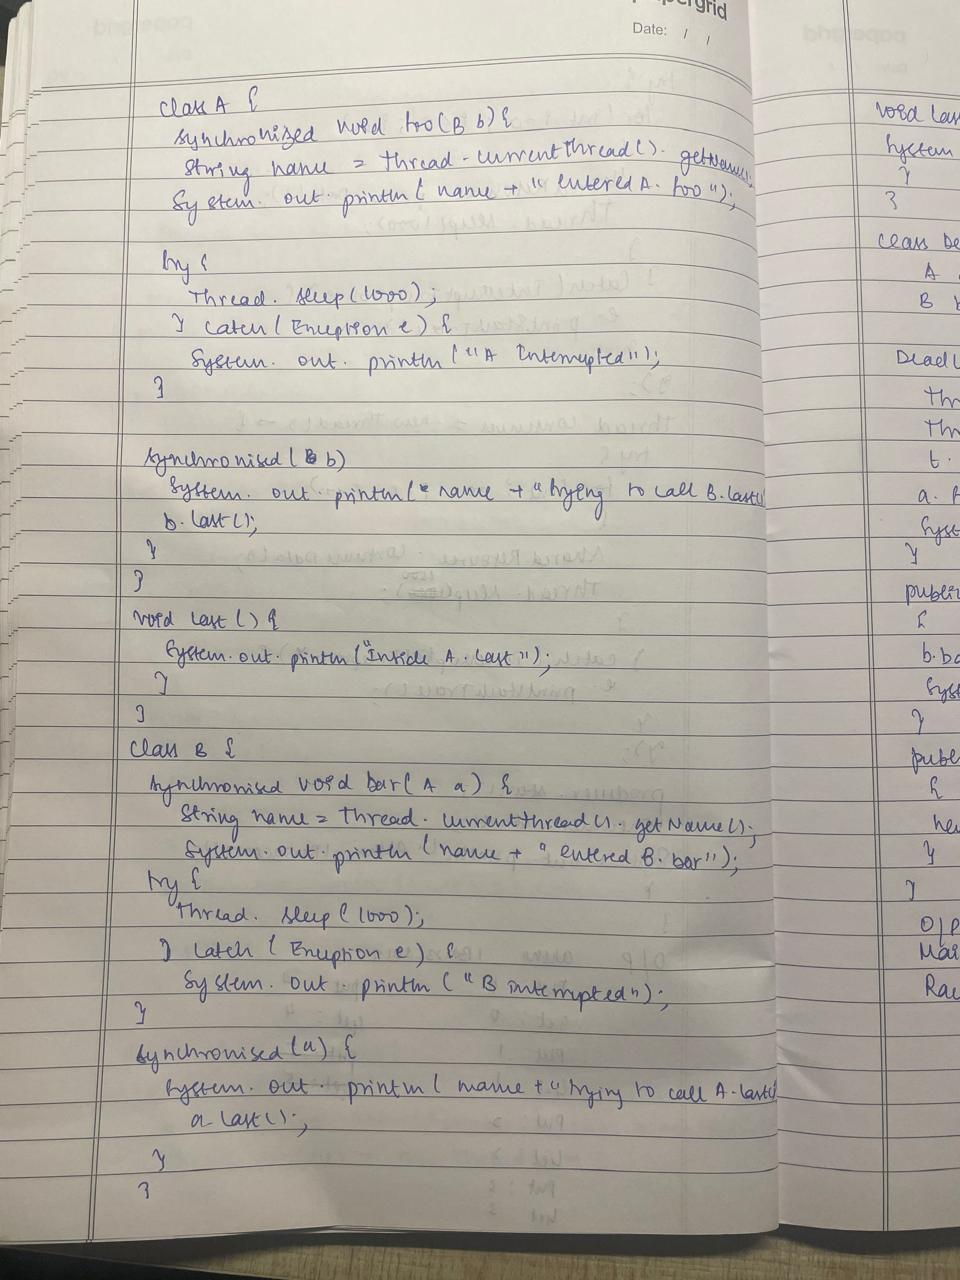 papergrid
Date: / /
Class A {
Synchronized void foo(B b){
String name = Thread.currentThread().getName();
System.out.println(name + " entered A.foo");
try {
Thread.sleep(1000);
} catch (Exception e) {
System.out.println("A Interrupted");
}
Synchronised (B b)
System.out.println(" name + "trying to call B.last()
b.last();
}
}
void last() {
System.out.println("Inside A.last");
}
}
Class B {
Synchronised void bar(A a) {
String name = Thread.currentThread().getName();
System.out.println(name + " entered B.bar");
try {
Thread.sleep(1000);
} catch (Exception e) {
System.out.println("B interrupted");
}
Synchronised (a) {
System.out.println(name + "trying to call A.last()
a.last();
}
}
void las
System
}
}
Class De
A
B b
Deadl
Thr
Thr
t.
a. f
Syst
}
public
{
b.ba
Syst
}
public
{
ne
}
}
O/P
Mai
Rac